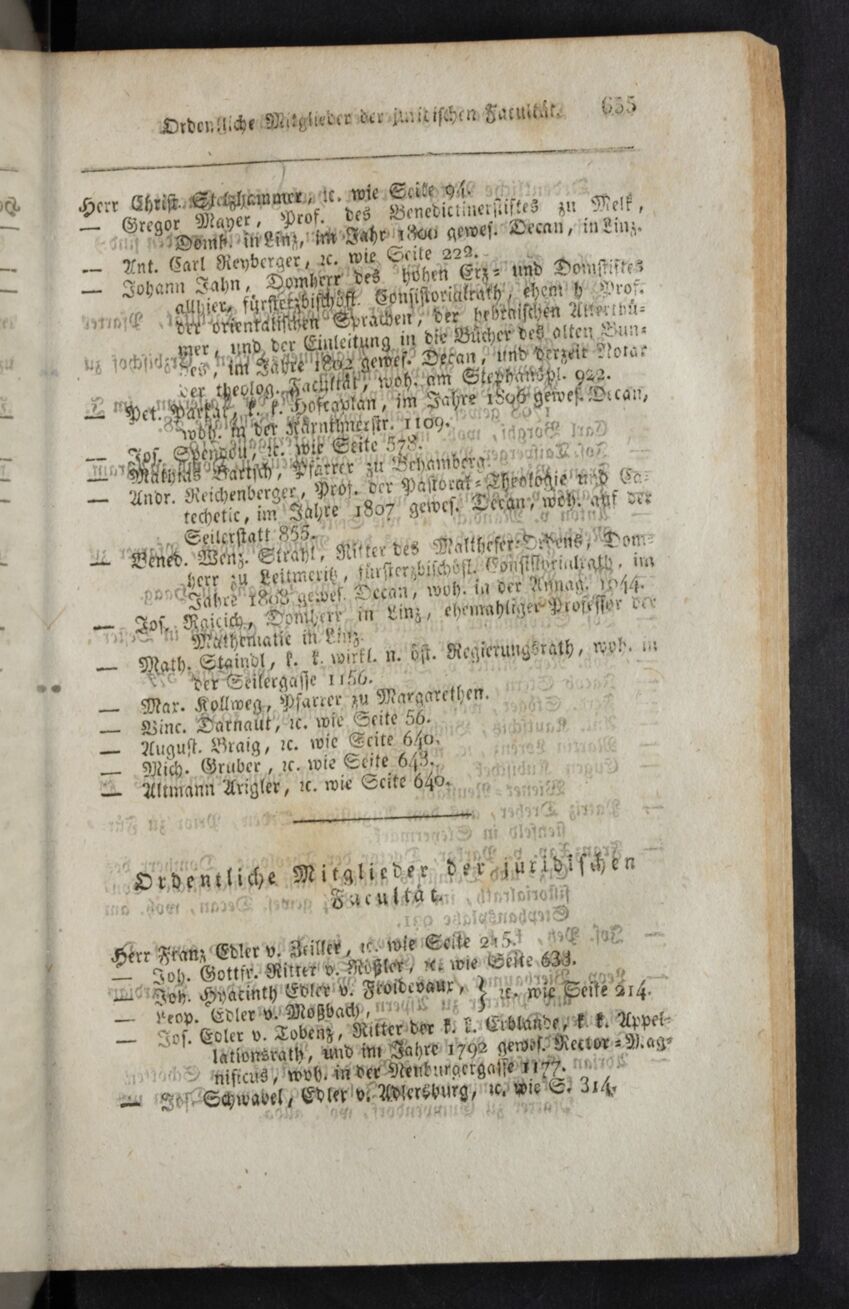 Ordentliche Mitglieder der juridischen Facultät. 655
Herr Christ. Stelzhammer, ꝛc. wie Seite 94.
— Gregor Mayer, Prof. des Benedictinerstiftes zu Melk,
Domh. in Linz, im Jahr 1800 gewes. Decan, in Linz.
— Ant. Carl Reyberger, ꝛc. wie Seite 222.
— Johann Jahn, Domherr des hohen Erz- und Domstiftes
allhier, fürsterzbischöfl. Consistorialrath, ehem h Prof.
der orientalischen Sprachen, der hebräischen Alterthü-
mer, und der Einleitung in die Bücher des alten Bun-
des, im Jahre 1802 gewes. Decan, und derzeit Notar
der theolog. Facultät, woh. am Stephanspl. 922.
— Pet. k. k. Hofcaplan, im Jahre 1806 gewes. Decan,
woh. in der Kärnthnerstr. 1109.
— Jos. Spendou, ꝛc. wie Seite 578.
— Mathias Bartsch, Pfarrer zu Behamberg.
— Andr. Reichenberger, Prof. der Pastoral-Theologie und Ca-
techetic, im Jahre 1807 gewes. Decan, woh. auf der
Seilerstatt 855.
— Bened. Wenz. Strahl, Ritter des Maltheser-Ordens, Dom-
herr zu Leitmeritz, fürsterzbischöfl. Consistorialrath, im
Jahre 1808 gewes. Decan, woh. in der Annag. 1044.
— Jos. Rajcich, Domherr in Linz, ehemahliger Professor der
Mathematic in Linz.
— Math. Staindl, k. k. wirkl. n. öst. Regierungsrath, woh. in
der Seilergasse 1156.
— Mar. Kollweg, Pfarrer zu Margarethen.
— Vinc. Darnaut, ꝛc. wie Seite 56.
— August. Braig, ꝛc. wie Seite 640.
— Mich. Gruber, ꝛc. wie Seite 643.
— Altmann Arigler, ꝛc. wie Seite 640.
Ordentliche Mitglieder der juridischen
Facultät.
Herr Franz Edler v. Zeiller, ꝛc. wie Seite 215.
— Joh. Gottfr. Ritter v. Mößler, ꝛc. wie Seite 633.
— Joh. Hyacinth Edler v. Froidevaux, } ꝛc. wie Seite 214.
— Leop. Edler v. Moßbach,
— Jos. Edler v. Tobenz, Ritter der k. k. Erblande, k. k. Appel-
lationsrath, und im Jahre 1792 gewes. Rector-Mag-
nificus, woh. in der Nenburgergasse 1177.
— Jos. Schwabel, Edler v. Adlersburg, ꝛc. wie S. 314.